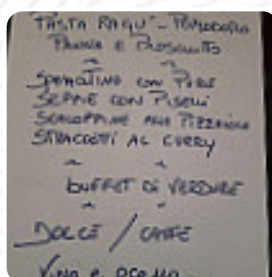 PASTA RAGU' - POMODORO
PANNA E PROSCIUTTO
SPEZZATINO CON PURE
SEPPIE CON PISELLI
SCALOPPINE ALLA PIZZAIOLA
STRACCETTI AL CURRY
BUFFET DI VERDURE
DOLCE / CAFFE
VINO E ACQUA